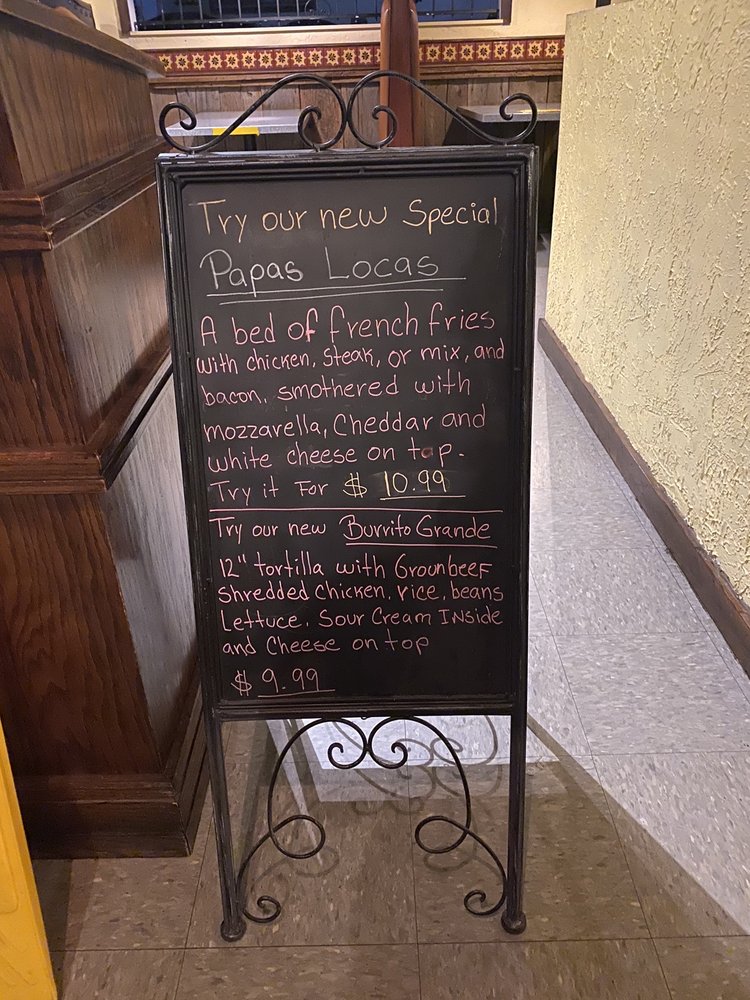 Try our new Special
Papas Locas
A bed of french fries
with chicken, steak, or mix, and
bacon, smothered with
mozzarella, Cheddar and
white cheese on top.
Try it For $ 10.99
Try our new Burrito Grande
12" tortilla with Grounbeef
Shredded Chicken, rice, beans
Lettuce, Sour Cream Inside
and Cheese on top
$ 9.99